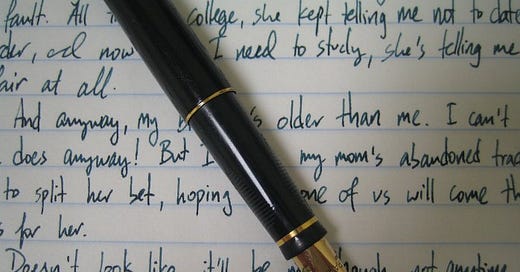 fault. All college, she kept telling me not to date
now I need to study, she's telling me
at all.
And anyway, my older than me. I can't
does anyway! But I my mom's abandoned
to split her bet, hoping one of us will come
for her.
Doesn't look like it'll be not anytime